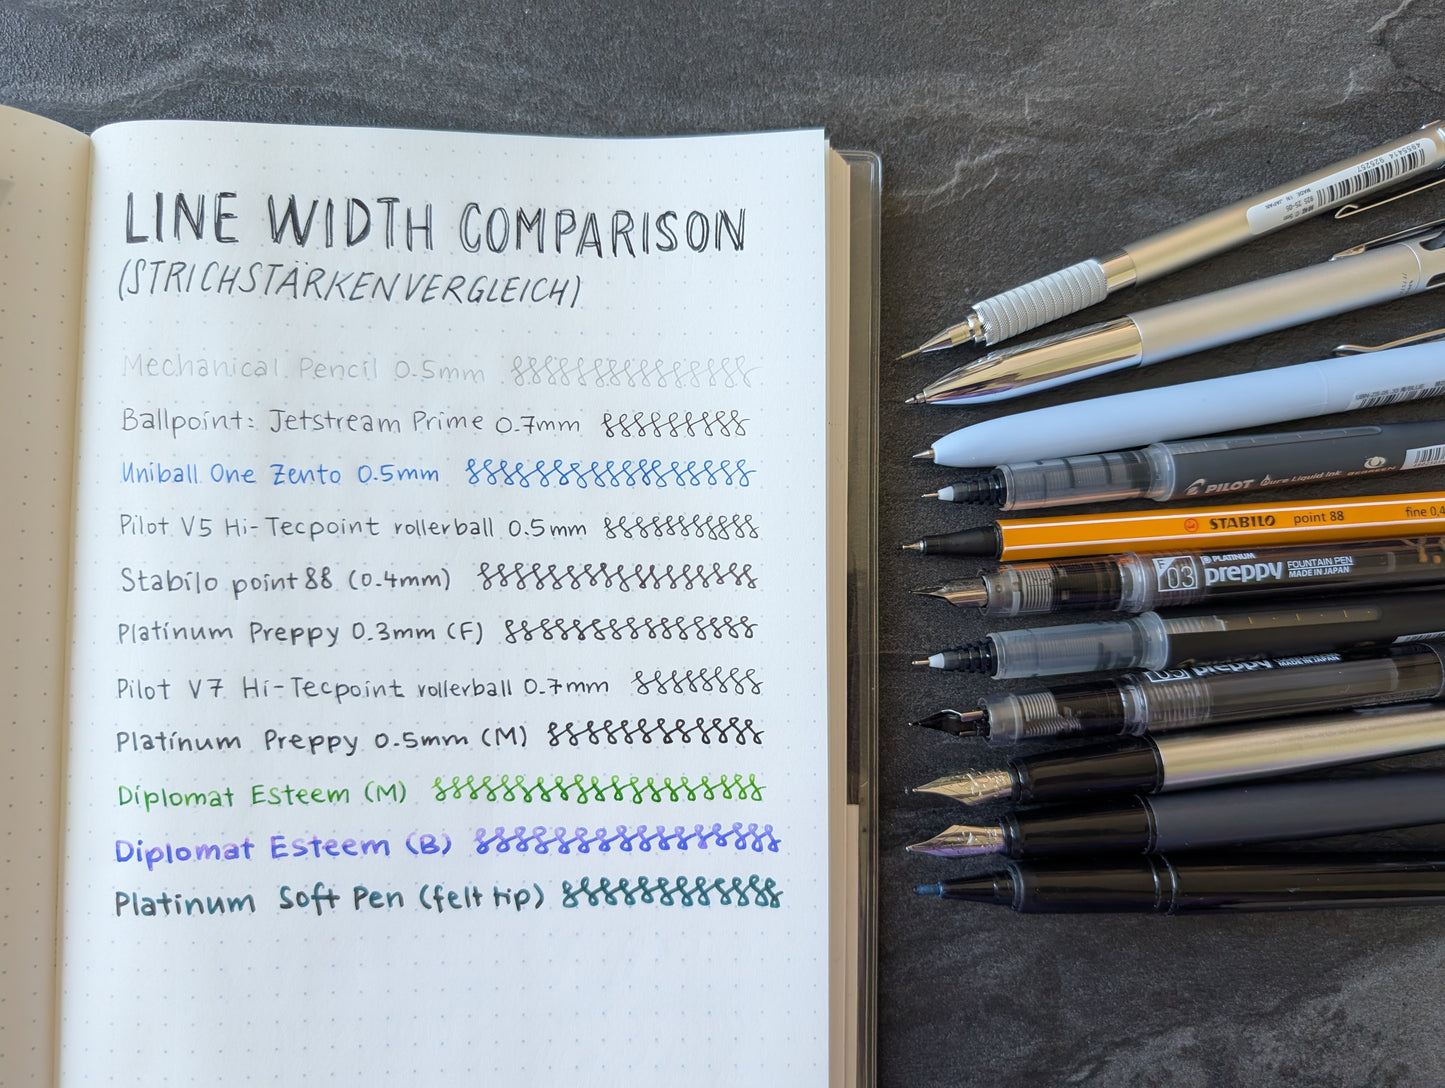 LINE WIDTH COMPARISON
(STRICHSTÄRKENVERGLEICH)
Mechanical Pencil 0.5mm
Ballpoint: Jetstream Prime 0.7mm
Uniball One Zento 0.5mm
Pilot V5 Hi-Tecpoint rollerball 0.5mm
Stabilo point 88 (0.4mm)
Platinum Preppy 0.3mm (F)
Pilot V7 Hi-Tecpoint rollerball 0.7mm
Platinum Preppy 0.5mm (M)
Diplomat Esteem (M)
Diplomat Esteem (B)
Platinum Soft Pen (felt tip)
4955414 925257
MADE IN JAPAN
925 25-05
PILOT Pure Liquid Ink BEGREEN
STABILO point 88 fine 0,4
F 03 PLATINUM preppy FOUNTAIN PEN MADE IN JAPAN
preppy MADE IN JAPAN